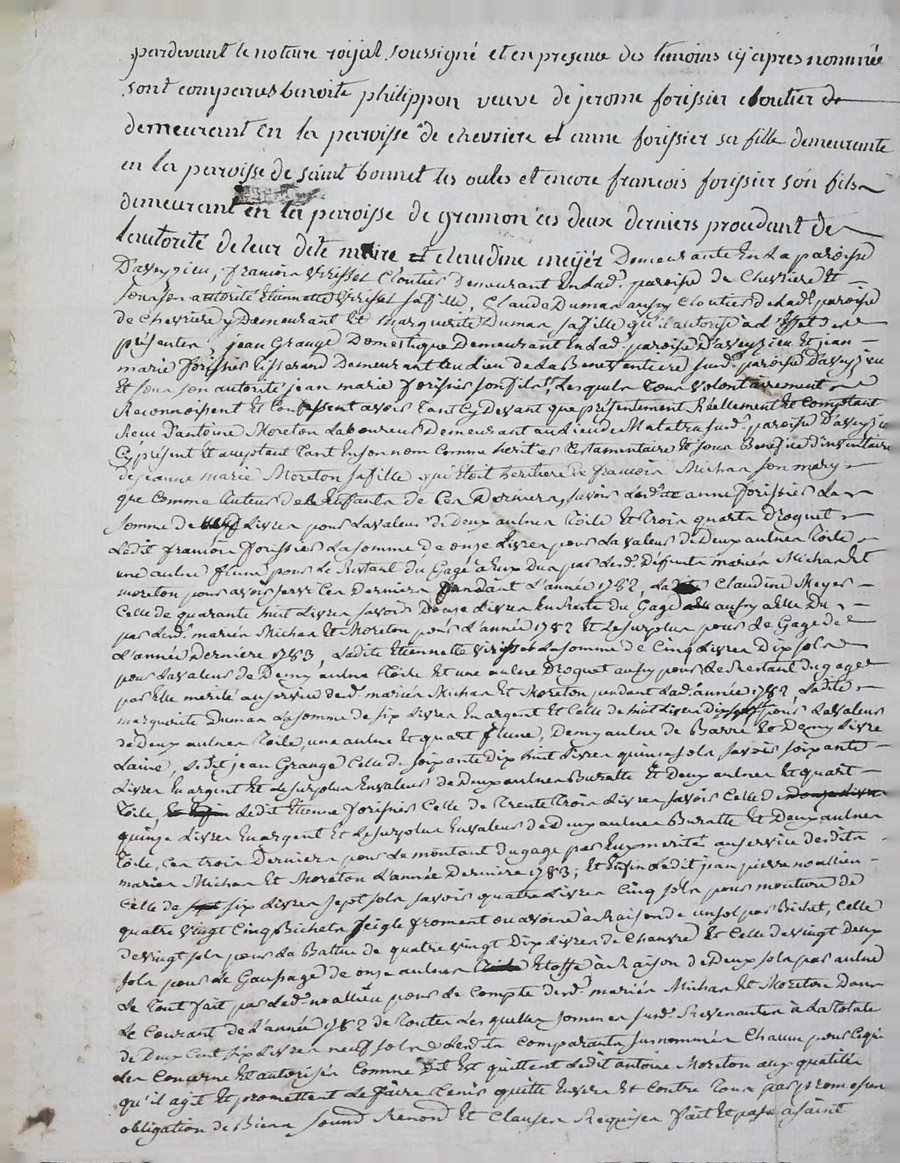 pardevant le notaire royal soussigné et en presence des temoins cy apres nommés
sont comparues benoite philippon veuve de jerome forissier cloutier de
demeurant en la paroisse de chevriere et anne forissier sa fille demeurante
en la paroisse de saint bonnet les oules et encore francois forissier son fils
demeurant en la paroisse de gramon ces deux derniers procedant de
lautorité de leur dite mere et claudine meyer Demeurante En La paroisse
D'aveyzieu, francois virisset Cloutier Demeurant En Lad.e paroisse de Chevriere Et
sous son autorité Etiennette virisset sa fille, Claude Dumas aussy Cloutier de Lad.e paroisse
de Chevriere y Demeurant Et marguerite Dumas sa fille qu'il autorise a L'Effet des
presentes, jean Grange Domestique Demeurant En Lad.e paroisse D'aveyzieu Et jean
marie forisier tisserand Demeurant au Lieu de La susd.e paroisse D'aveyzieu
Et sous son autorité jean marie forisier son fils, Lesquels tous volontairement
Reconnoissent Et Confessent avoir tant Cy Devant que présentement Réellement Et Comptant
Recu D'antoine Moreton Laboureur Demeurant au Lieu de susd.e paroisse D'aveyzieu
Cy présent Et acceptant tant En son nom Comme heritier testamentaire Et sous Benefice D'inventaire
de jeanne marie Moreton sa fille qui étoit heritiere de francois Michas son mary
que Comme tuteur de Enfants de Ces Derniers, savoir Ladite anne forissier La
somme de Livres pour La valeur de Deux aulnes toile Et trois quarts Droguet
Ledit francois forissier La somme de onze Livres pour La valeur de Deux aulnes toile
une aulne pour Le Restant du Gage a Eux Du par Lesd. Défunts mariés Michas Et
moreton pour avoir servi Ces Derniers pendant L'année 1782, La dite Claudine Meyer
Celle de quarante huit Livres savoir Douze Livres En Reste du Gage aussy a Elle Du
par Lesd. mariés Michas Et Moreton pour L'année 1782 Et Le surplus pour Le Gage de
L'année Derniere 1783, Ladite Etiennette virisset La somme de Cinq Livres Dix sols
pour La valeur de Demy aulne toile Et une aulne Droguet aussy pour Le Restant du gage
par Elle merité au service desd. mariés Michas Et Moreton pendant Lad. année 1782, Ladite
marguerite Dumas La somme de six Livres En argent Et Celle de huit Livres pour La valeur
de Deux aulnes toile, une aulne Et quart, Demy aulne de Et Demy Livre
Laine, Ledit jean Grange Celle de soixante Dix huit Livres quinze sols savoir soixante
Livres En argent Et Le surplus En valeur de Deux aulnes Buratte Et Deux aulnes Et quart
toile Ledit Etienne forisier Celle de trente trois Livres savoir Celle de
quinze Livres En argent Et Le surplus En valeur de Deux aulnes Buratte Et Deux aulnes
toile, Ces trois Derniers pour Le montant du gage par Eux merité au service desdits
mariés Michas Et Moreton L'année Derniere 1783, Et Enfin Ledit jean pierre noallieu
Celle de six Livres sept sols savoir quatre Livres Cinq sols pour mouture de
quatre vingt Cinq Bichets seigle froment ou avoine a Raison de un sol par Bichet, Celle
de vingt sols pour La Battue de quatre vingt Dix Livres de Chanvre Et Celle de vingt Deux
sols pour Le Gaufrage de onze aulnes Etoffe à Raison de Deux sols par aulne
Le tout fait par Led. noallieu pour Le Compte desd. mariés Michas Et Moreton Dans
Le Courant de L'année 1782 de toutes Lesquelles sommes susd. Revenantes à La totale
de Deux Cent six Livres neuf sols Lesdits Comparants susnommés Chacun pour Ce qui
Les Concerne Et autorisés Comme Dit Est quittent Ledit antoine Moreton aux qualités
qu'il agit Et promettent Le faire tenir quitte Envers Et Contre tous par promesse
obligation de Biens soum.d Renond. Et Clauses Requises fait Et passé a saint